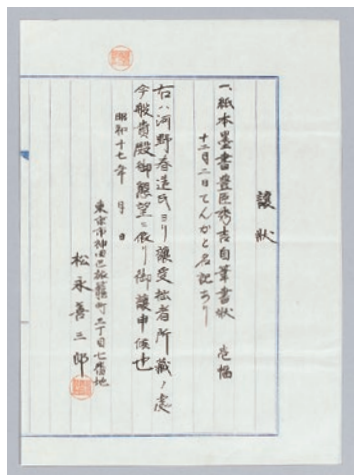 讓狀
一、紙本墨書豊臣秀吉自筆書狀　壱幅
十二月二日てんかと名記あり
右ハ河野春造氏ヨリ讓受拙者所藏ノ處
今般貴殿御懇望ニ依リ御讓申候也
昭和十七年　月　日
東京市神田區 町三丁目七番地
松永善三郎